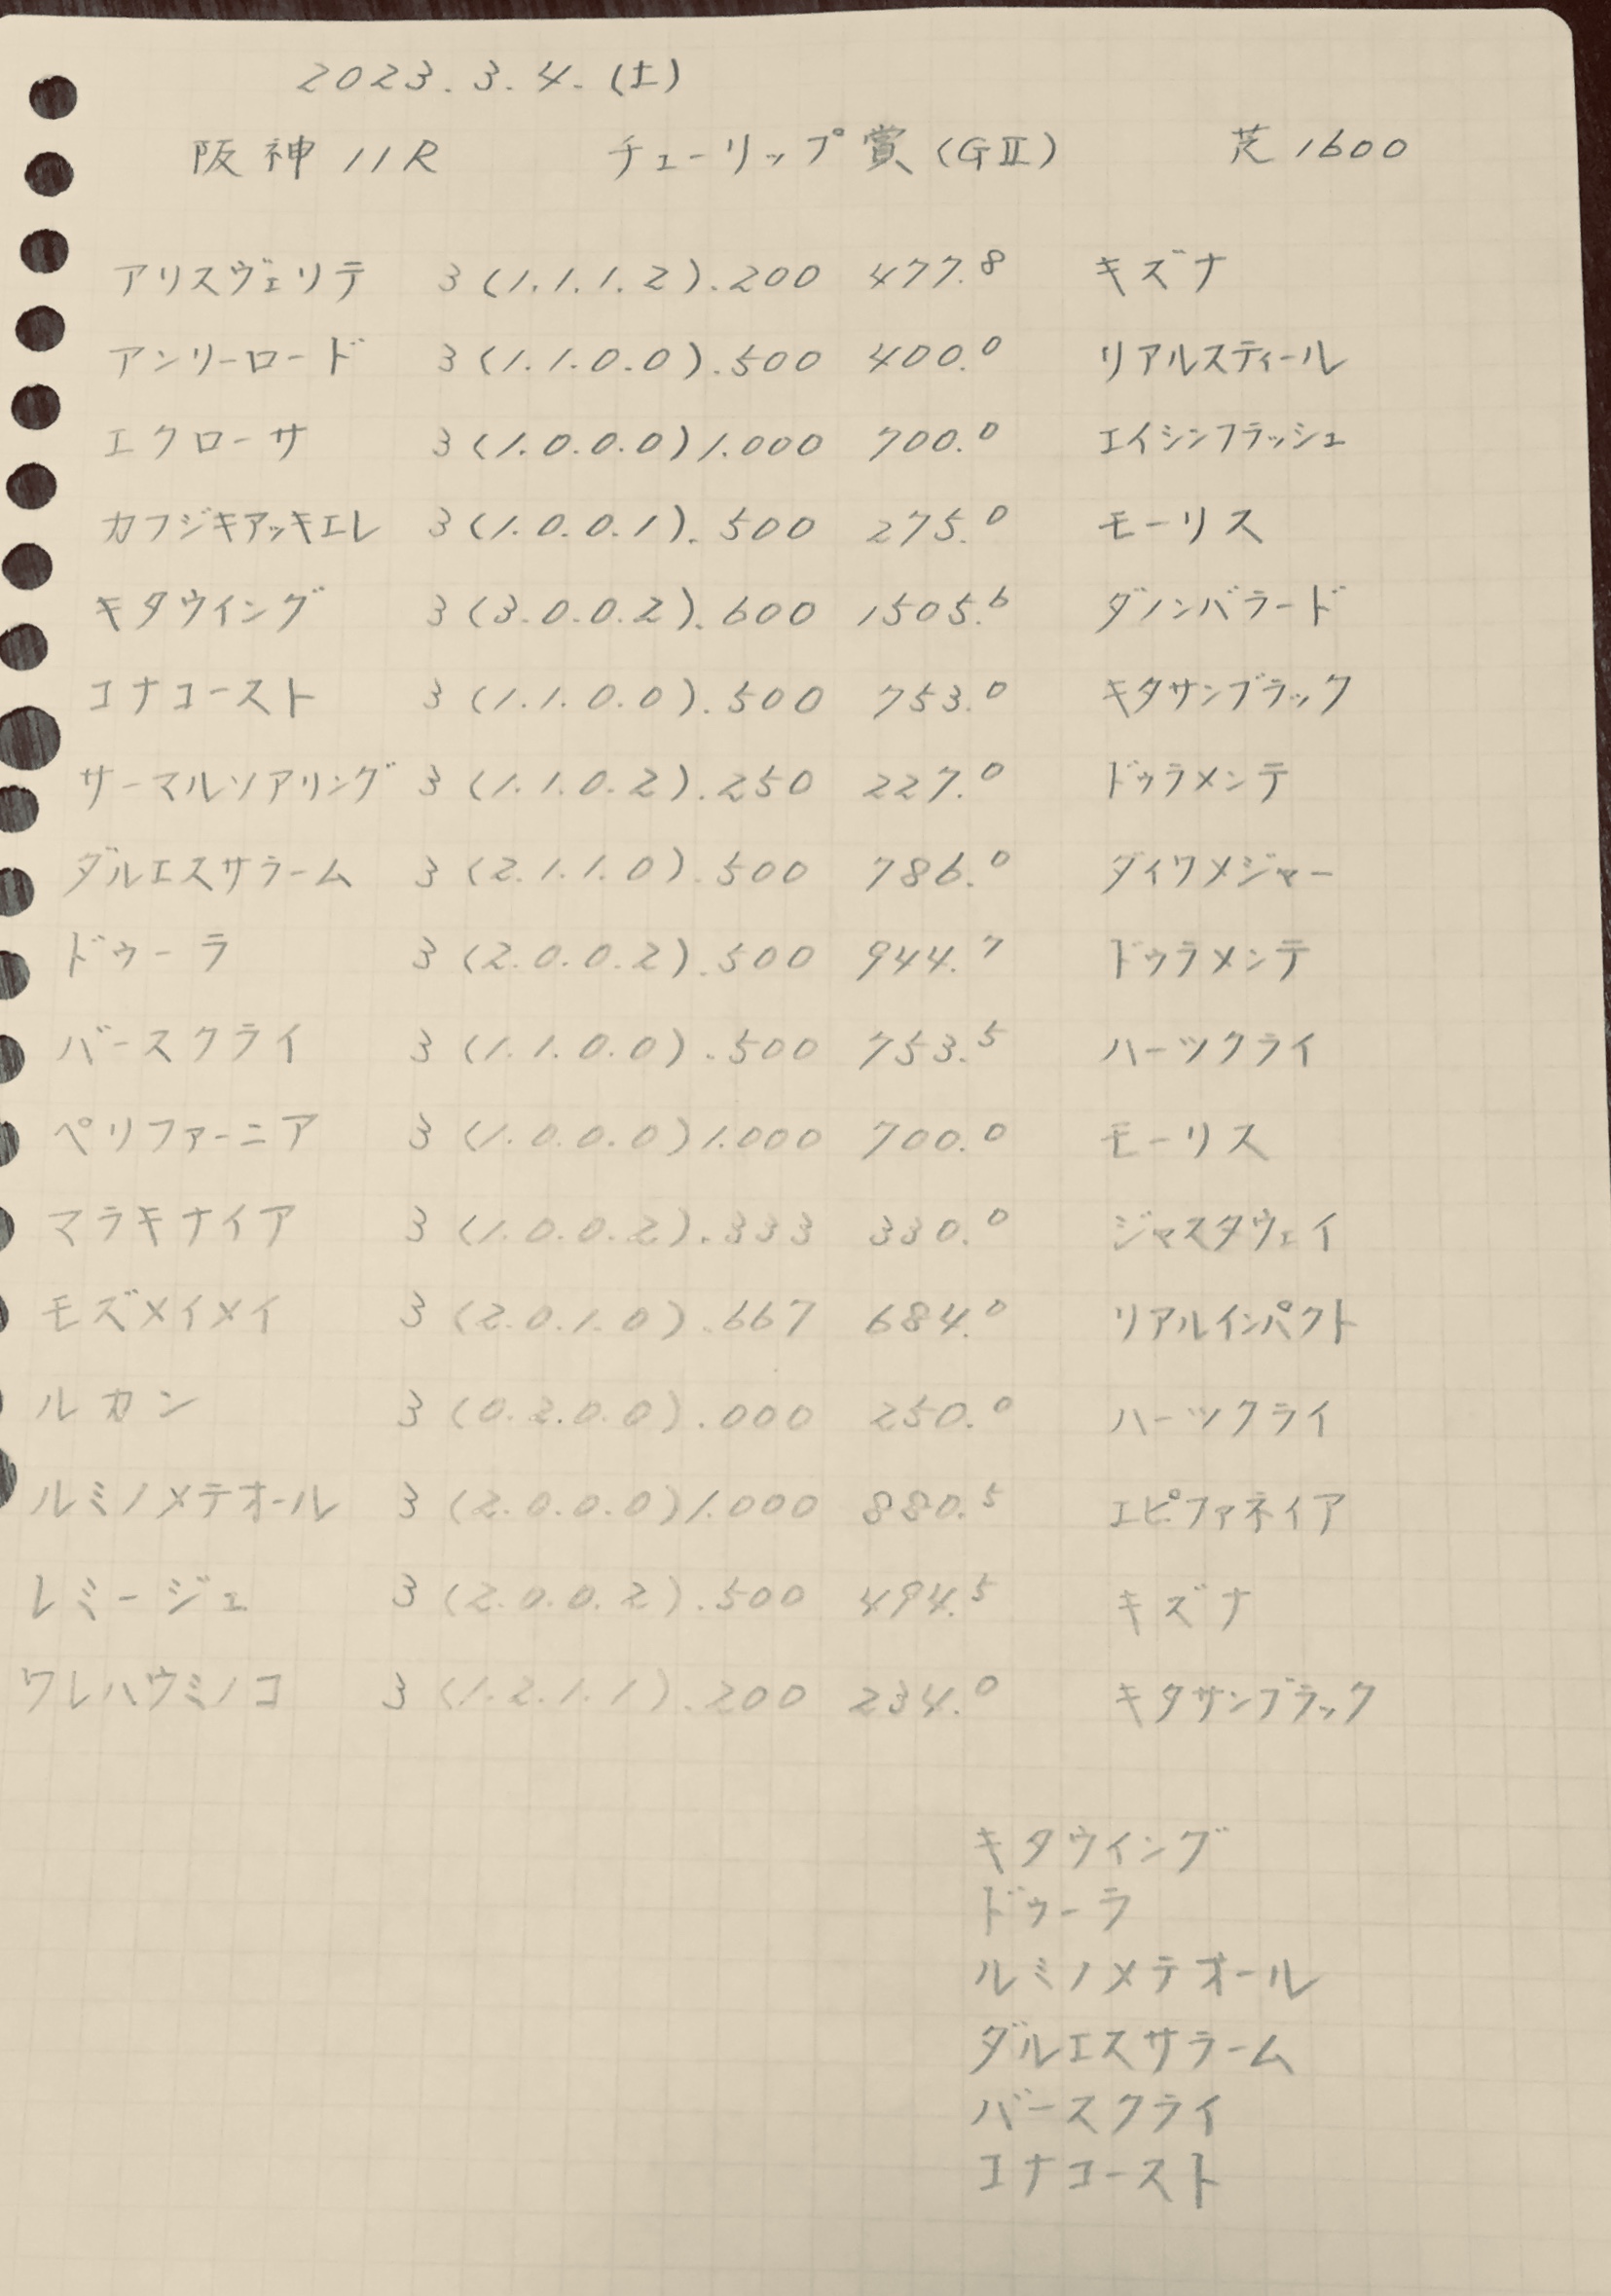 2023.3.4.(土)
阪神11R チューリップ賞(GII) 芝1600
アリスヴェリテ 3(1.1.1.2).200 477.8 キズナ
アンリーロード 3(1.1.0.0).500 400.0 リアルスティール
エクローサ 3(1.0.0.0)1.000 700.0 エイシンフラッシュ
カフジキアッキエレ 3(1.0.0.1).500 275.0 モーリス
キタウイング 3(3.0.0.2).600 1505.6 ダノンバラード
コナコースト 3(1.1.0.0).500 753.0 キタサンブラック
サーマルソアリング 3(1.1.0.2).250 227.0 ドゥラメンテ
ダルエスサラーム 3(2.1.1.0).500 786.0 ダイワメジャー
ドゥーラ 3(2.0.0.2).500 944.7 ドゥラメンテ
バースクライ 3(1.1.0.0).500 753.5 ハーツクライ
ペリファーニア 3(1.0.0.0)1.000 700.0 モーリス
マラキナイア 3(1.0.0.2).333 330.0 ジャスタウェイ
モズメイメイ 3(2.0.1.0).667 684.0 リアルインパクト
ルカン 3(0.2.0.0).000 250.0 ハーツクライ
ルミノメテオール 3(2.0.0.0)1.000 880.5 エピファネイア
レミージェ 3(2.0.0.2).500 494.5 キズナ
ワレハウミノコ 3(1.2.1.1).200 234.0 キタサンブラック
キタウイング
ドゥーラ
ルミノメテオール
ダルエスサラーム
バースクライ
コナコースト